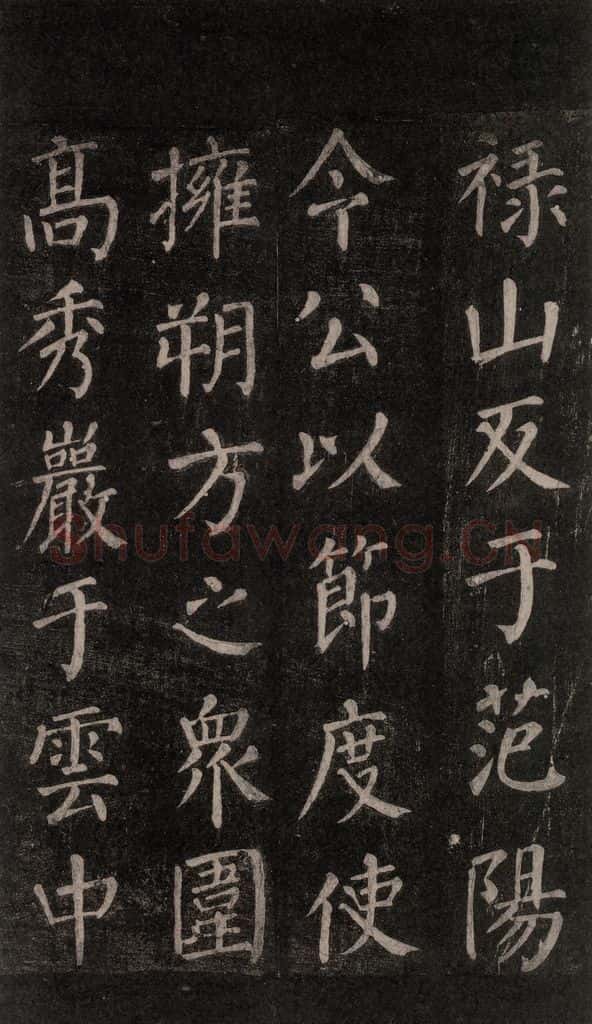 禄山反于范陽
今公以節度使
擁朔方之衆圍
髙秀巖于雲中
Shufawang.CN